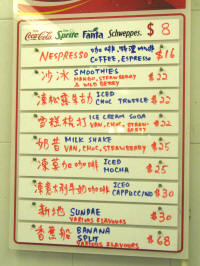 Coca-Cola Sprite Fanta Schweppes. $8
NESPRESSO 咖啡, 特濃咖啡 COFFEE, ESPRESSO $16
沙冰 SMOOTHIES
MANGO, STRAWBERRY $22
& WILD BERRY
ICED
CHOC TRUFFLE $22
雪糕梳打 ICE CREAM SODA
VAN, CHOC, STRAWBERRY $22
奶昔 MILK SHAKE
VAN, CHOC, STRAWBERRY $25
咖啡 ICED
MOCHA $25
咖啡 ICED
CAPPUCCINO $30
新地 SUNDAE
VARIOUS FLAVOURS $30
香蕉船 BANANA
SPLIT $68
VARIOUS FLAVOURS